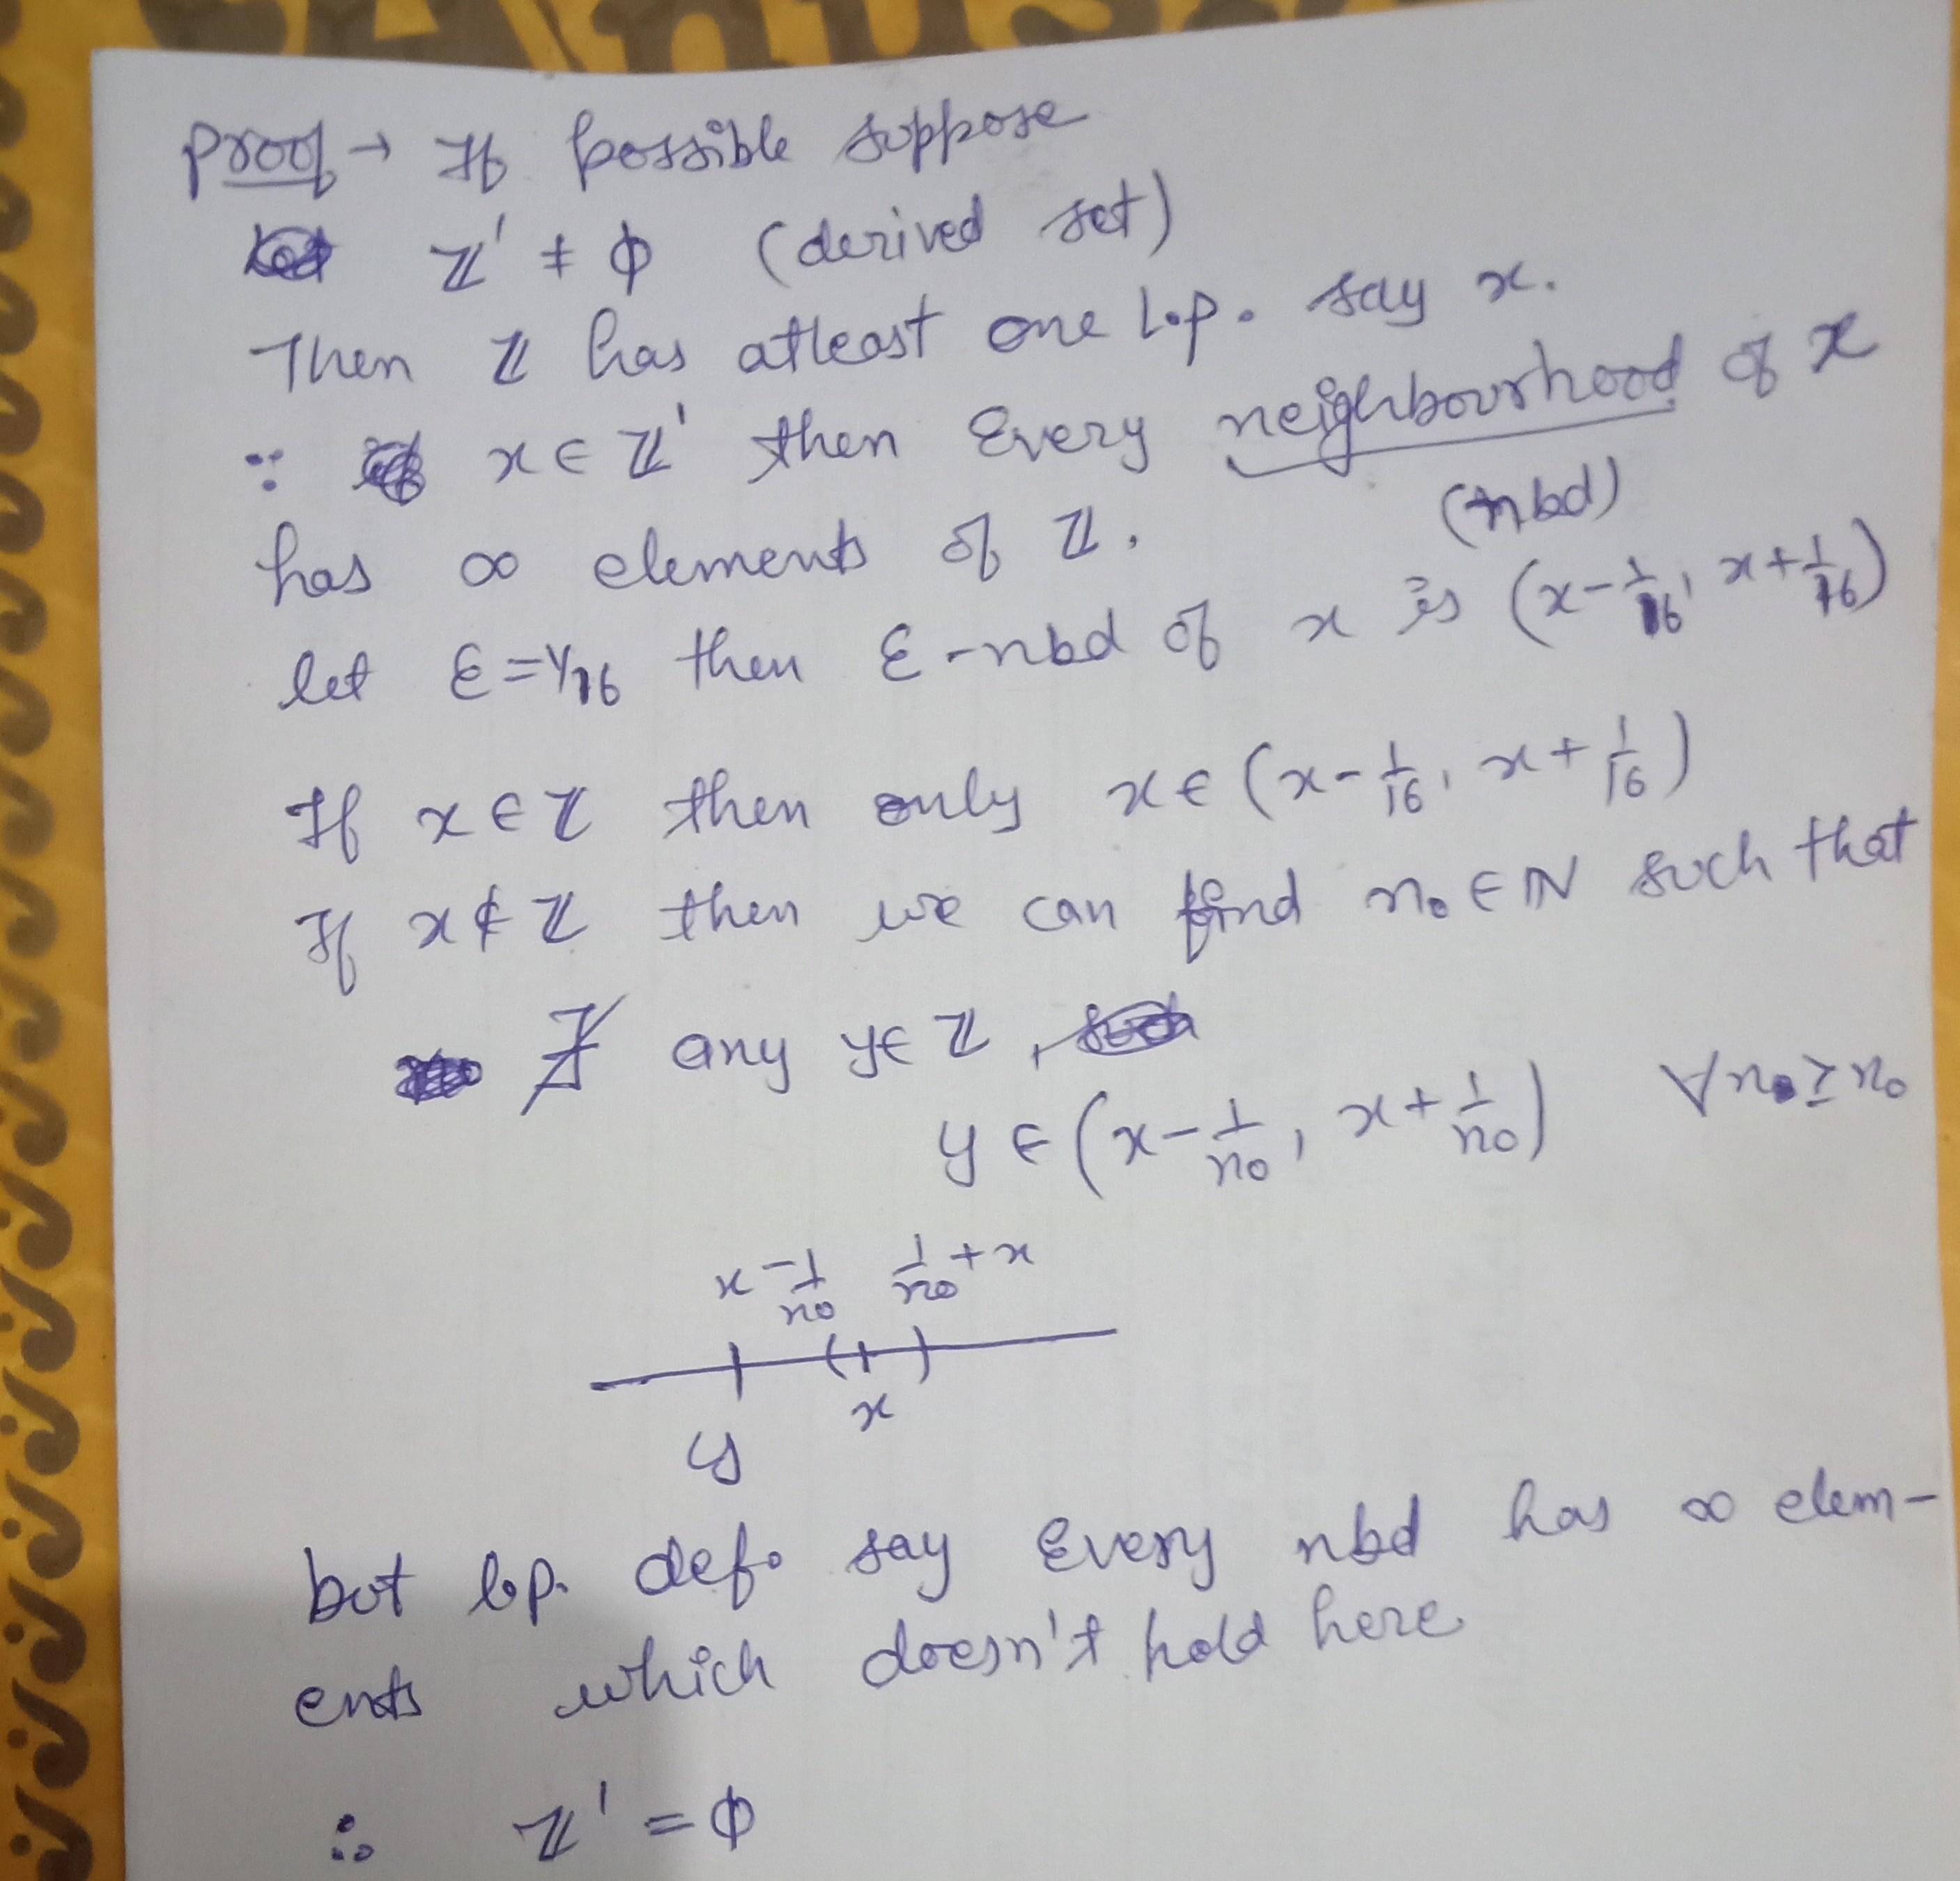 Proof → If possible suppose
ℤ' ≠ ϕ (derived set)
Then ℤ has atleast one l.p. say x.
∵ x ∈ ℤ' then Every neighbourhood of x
(nbd)
has ∞ elements of ℤ.
let ε = 1/16 then ε-nbd of x is (x - 1/16, x + 1/16)
If x ∈ ℤ then only x ∈ (x - 1/16, x + 1/16)
If x ∉ ℤ then we can find n₀ ∈ ℕ such that
∄ any y ∈ ℤ,
y ∈ (x - 1/n₀, x + 1/n₀) ∀ n ≥ n₀
x - 1/n₀ 1/n₀ + x
x
y
but l.p. def. say Every nbd has ∞ elem-
ents which doesn't hold here
∴ ℤ' = ϕ